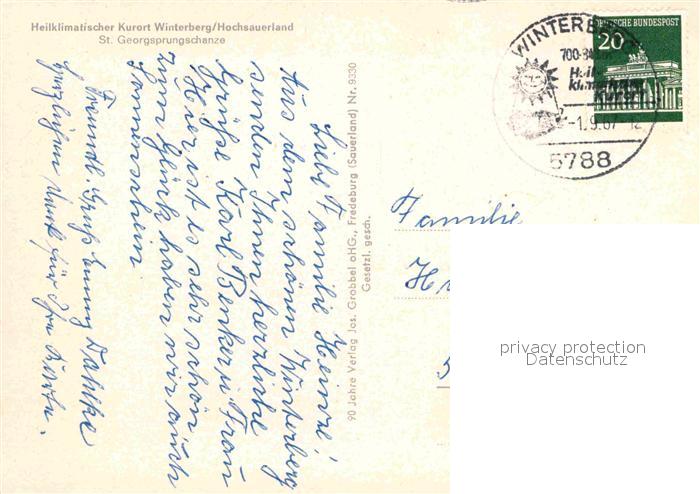 Heilklimatischer Kurort Winterberg/Hochsauerland
St. Georgsprungschanze
Liebe Familie Heinze!
Aus dem schönen Winterberg
senden Ihnen herzliche
Grüße Karl Benker u. Frau
Hier ist es sehr schön
zum Glück haben wir auch
Sonnenschein.
Freundl. Gruß Dahlke
Herzlichen Dank für Ihre Karte.
90 Jahre Verlag Jos. Grobbel oHG., Fredeburg (Sauerland) Nr. 9330
Gesetzl. gesch.
WINTERBERG
700-84
Heil-
klimatischer
Kurort
-1.9.67-12
5788
DEUTSCHE BUNDESPOST
20
Familie
privacy protection
Datenschutz